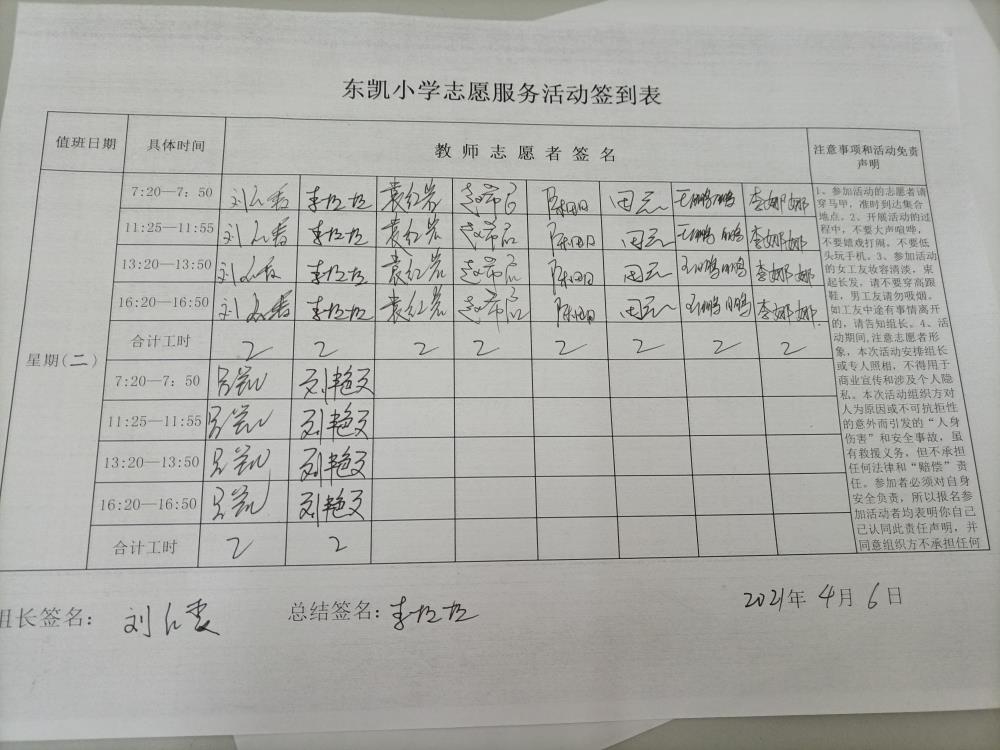 东凯小学志愿服务活动签到表
值班日期 具体时间 教师志愿者签名 注意事项和活动免责声明
星期(二)
7:20—7:50 袁红岩 田 王鹏鹏 李娜娜
11:25—11:55 袁红岩 田 王鹏鹏 李娜娜
13:20—13:50 袁红岩 田 王鹏鹏 李娜娜
16:20—16:50 袁红岩 田 王鹏鹏 李娜娜
合计工时 2 2 2 2 2 2 2 2
7:20—7:50 刘艳文
11:25—11:55 刘艳文
13:20—13:50 刘艳文
16:20—16:50 刘艳文
合计工时 2 2
1、参加活动的志愿者请
穿马甲，准时到达集合
地点。2、开展活动的过
程中，不要大声喧哗，
不要嬉戏打闹，不要低
头玩手机。3、参加活动
的女工友妆容清淡，束
起长发，请不要穿高跟
鞋，男工友请勿吸烟。
如工友中途有事情离开
的，请告知组长。4、活
动期间，注意志愿者形
象，本次活动安排组长
或专人照相，不得用于
商业宣传和涉及个人隐
私。本次活动组织方对
人为原因或不可抗拒性
的意外而引发的“人身
伤害”和安全事故，虽
有救援义务，但不承担
任何法律和“赔偿”责
任。参加者必须对自身
安全负责，所以报名参
加活动者均表明你自己
已认同此责任声明，并
同意组织方不承担任何
组长签名： 刘 总结签名: 李 2021年 4月 6日